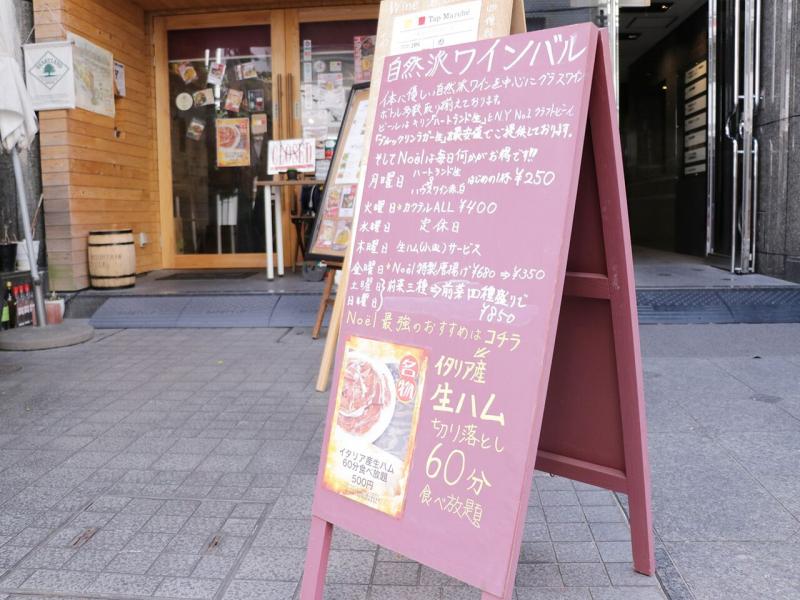 Wine
Tap Marché
HEARTLAND
CLOSED
自然派ワインバル
体に優しい自然派ワインを中心にグラスワイン
ボトル多数取り揃えております。
ビールはキリン「ハートランド生」とN.Y No.1 クラフトビール
「ブルックリンラガー生」を最安値でご提供しております。
そしてNoëlは毎日何かがお得です!!
月曜日 ハートランド生 or ハウスワイン赤白 はじめの1杯 ¥250
火曜日 カクテルALL ¥400
水曜日 定休日
木曜日 生ハム(小皿)サービス
金曜日 Noël特製唐揚げ ¥680→¥350
土曜日 日曜日 前菜三種⇒前菜四種盛りで
¥850
Noël最強のおすすめはコチラ
イタリア産
生ハム
切り落とし
60分
食べ放題
名物
イタリア産生ハム
60分食べ放題
500円